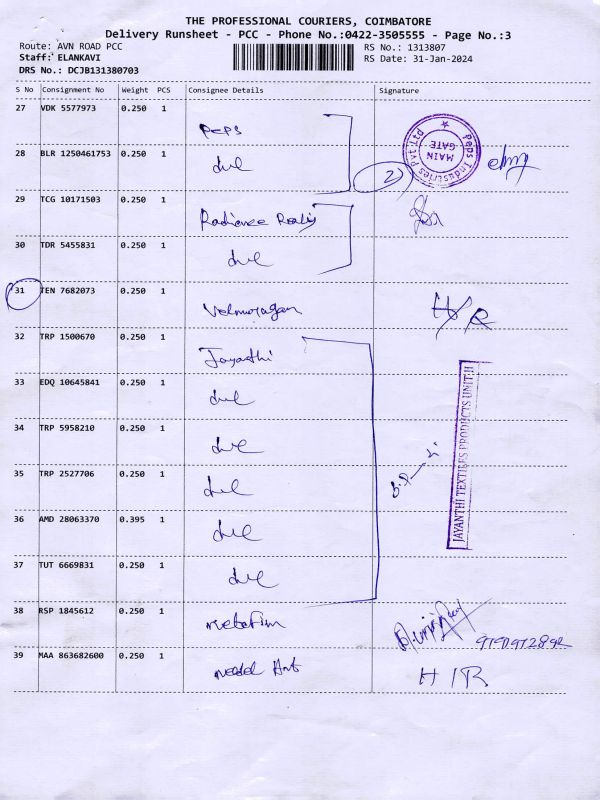 THE PROFESSIONAL COURIERS, COIMBATORE
Delivery Runsheet - PCC - Phone No.:0422-3505555 - Page No.:3
Route: AVN ROAD PCC
RS No.: 1313807
Staff: ELANKAVI
RS Date: 31-Jan-2024
DRS No.: DCJB131380703
S No Consignment No Weight PCS Consignee Details Signature
27 VDK 5577973 0.250 1 PePS
28 BLR 1250461753 0.250 1
2)
Peps Industries Pvt Ltd
MAIN GATE
29 TCG 10171503 0.250 1 Radiance Realty
30 TDR 5455831 0.250 1
31 TEN 7682073 0.250 1 Velmuragan H/R
32 TRP 1500670 0.250 1 Jayanthi
33 EDQ 10645841 0.250 1
34 TRP 5958210 0.250 1
35 TRP 2527706 0.250 1
36 AMD 28063370 0.395 1
37 TUT 6669831 0.250 1
JAYANTHI TEXTILES PRODUCTS UNIT.II
38 RSP 1845612 0.250 1
39 MAA 863682600 0.250 1 H/R